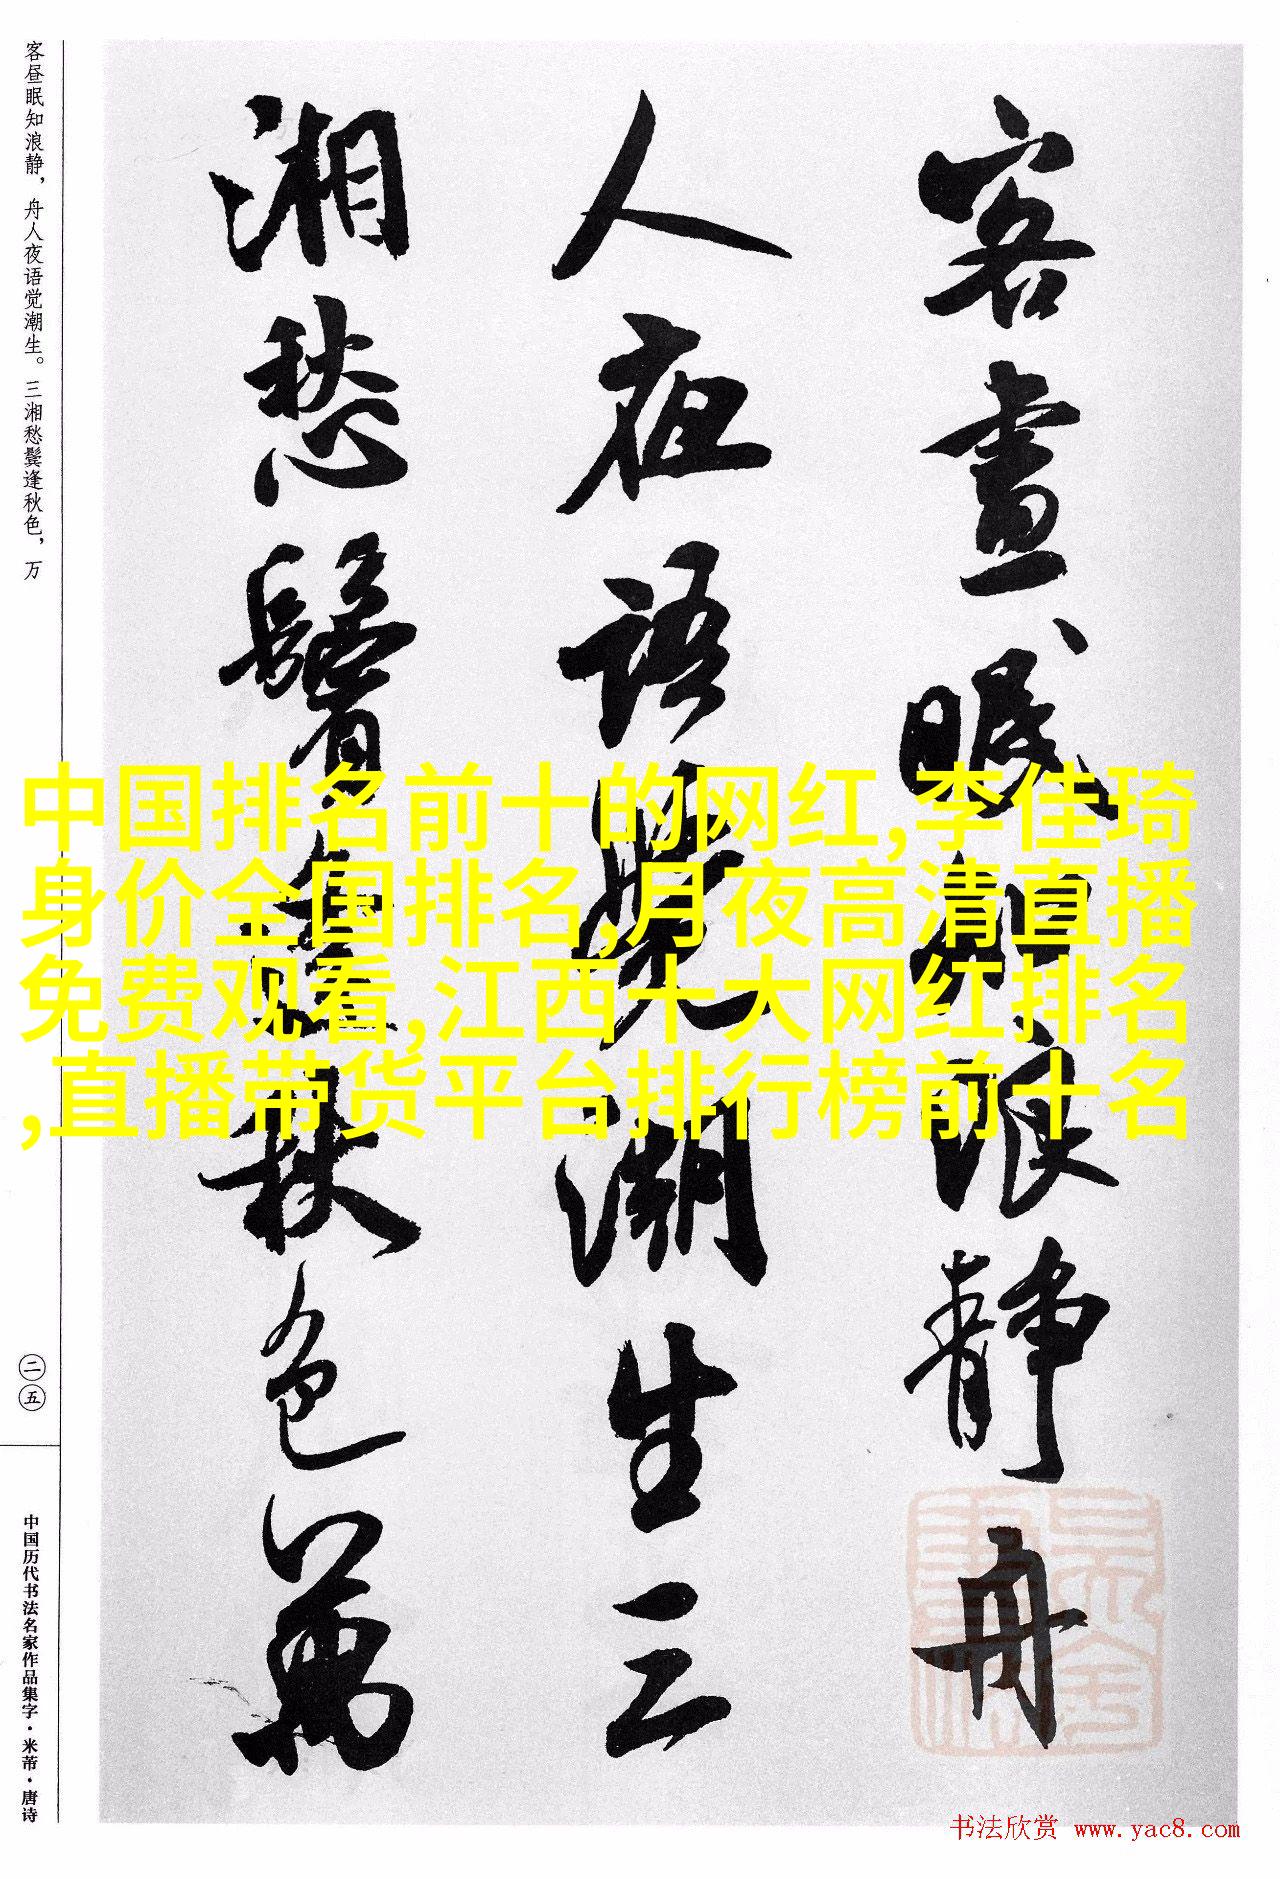 客晝眠知浪静舟
人夜语覺潮生三
湘愁鬢逢秋色萬
客昼眠知浪静，舟人夜语觉潮生。三湘愁鬓逢秋色，万
二五
中国历代书法名家作品集字·米芾·唐诗
中国排名前十的网红,李佳琦
身价全国排名,月夜高清直播
免费观看,江西十大网红排名
,直播带货平台排行榜前十名
书法欣赏 www.yac8.com